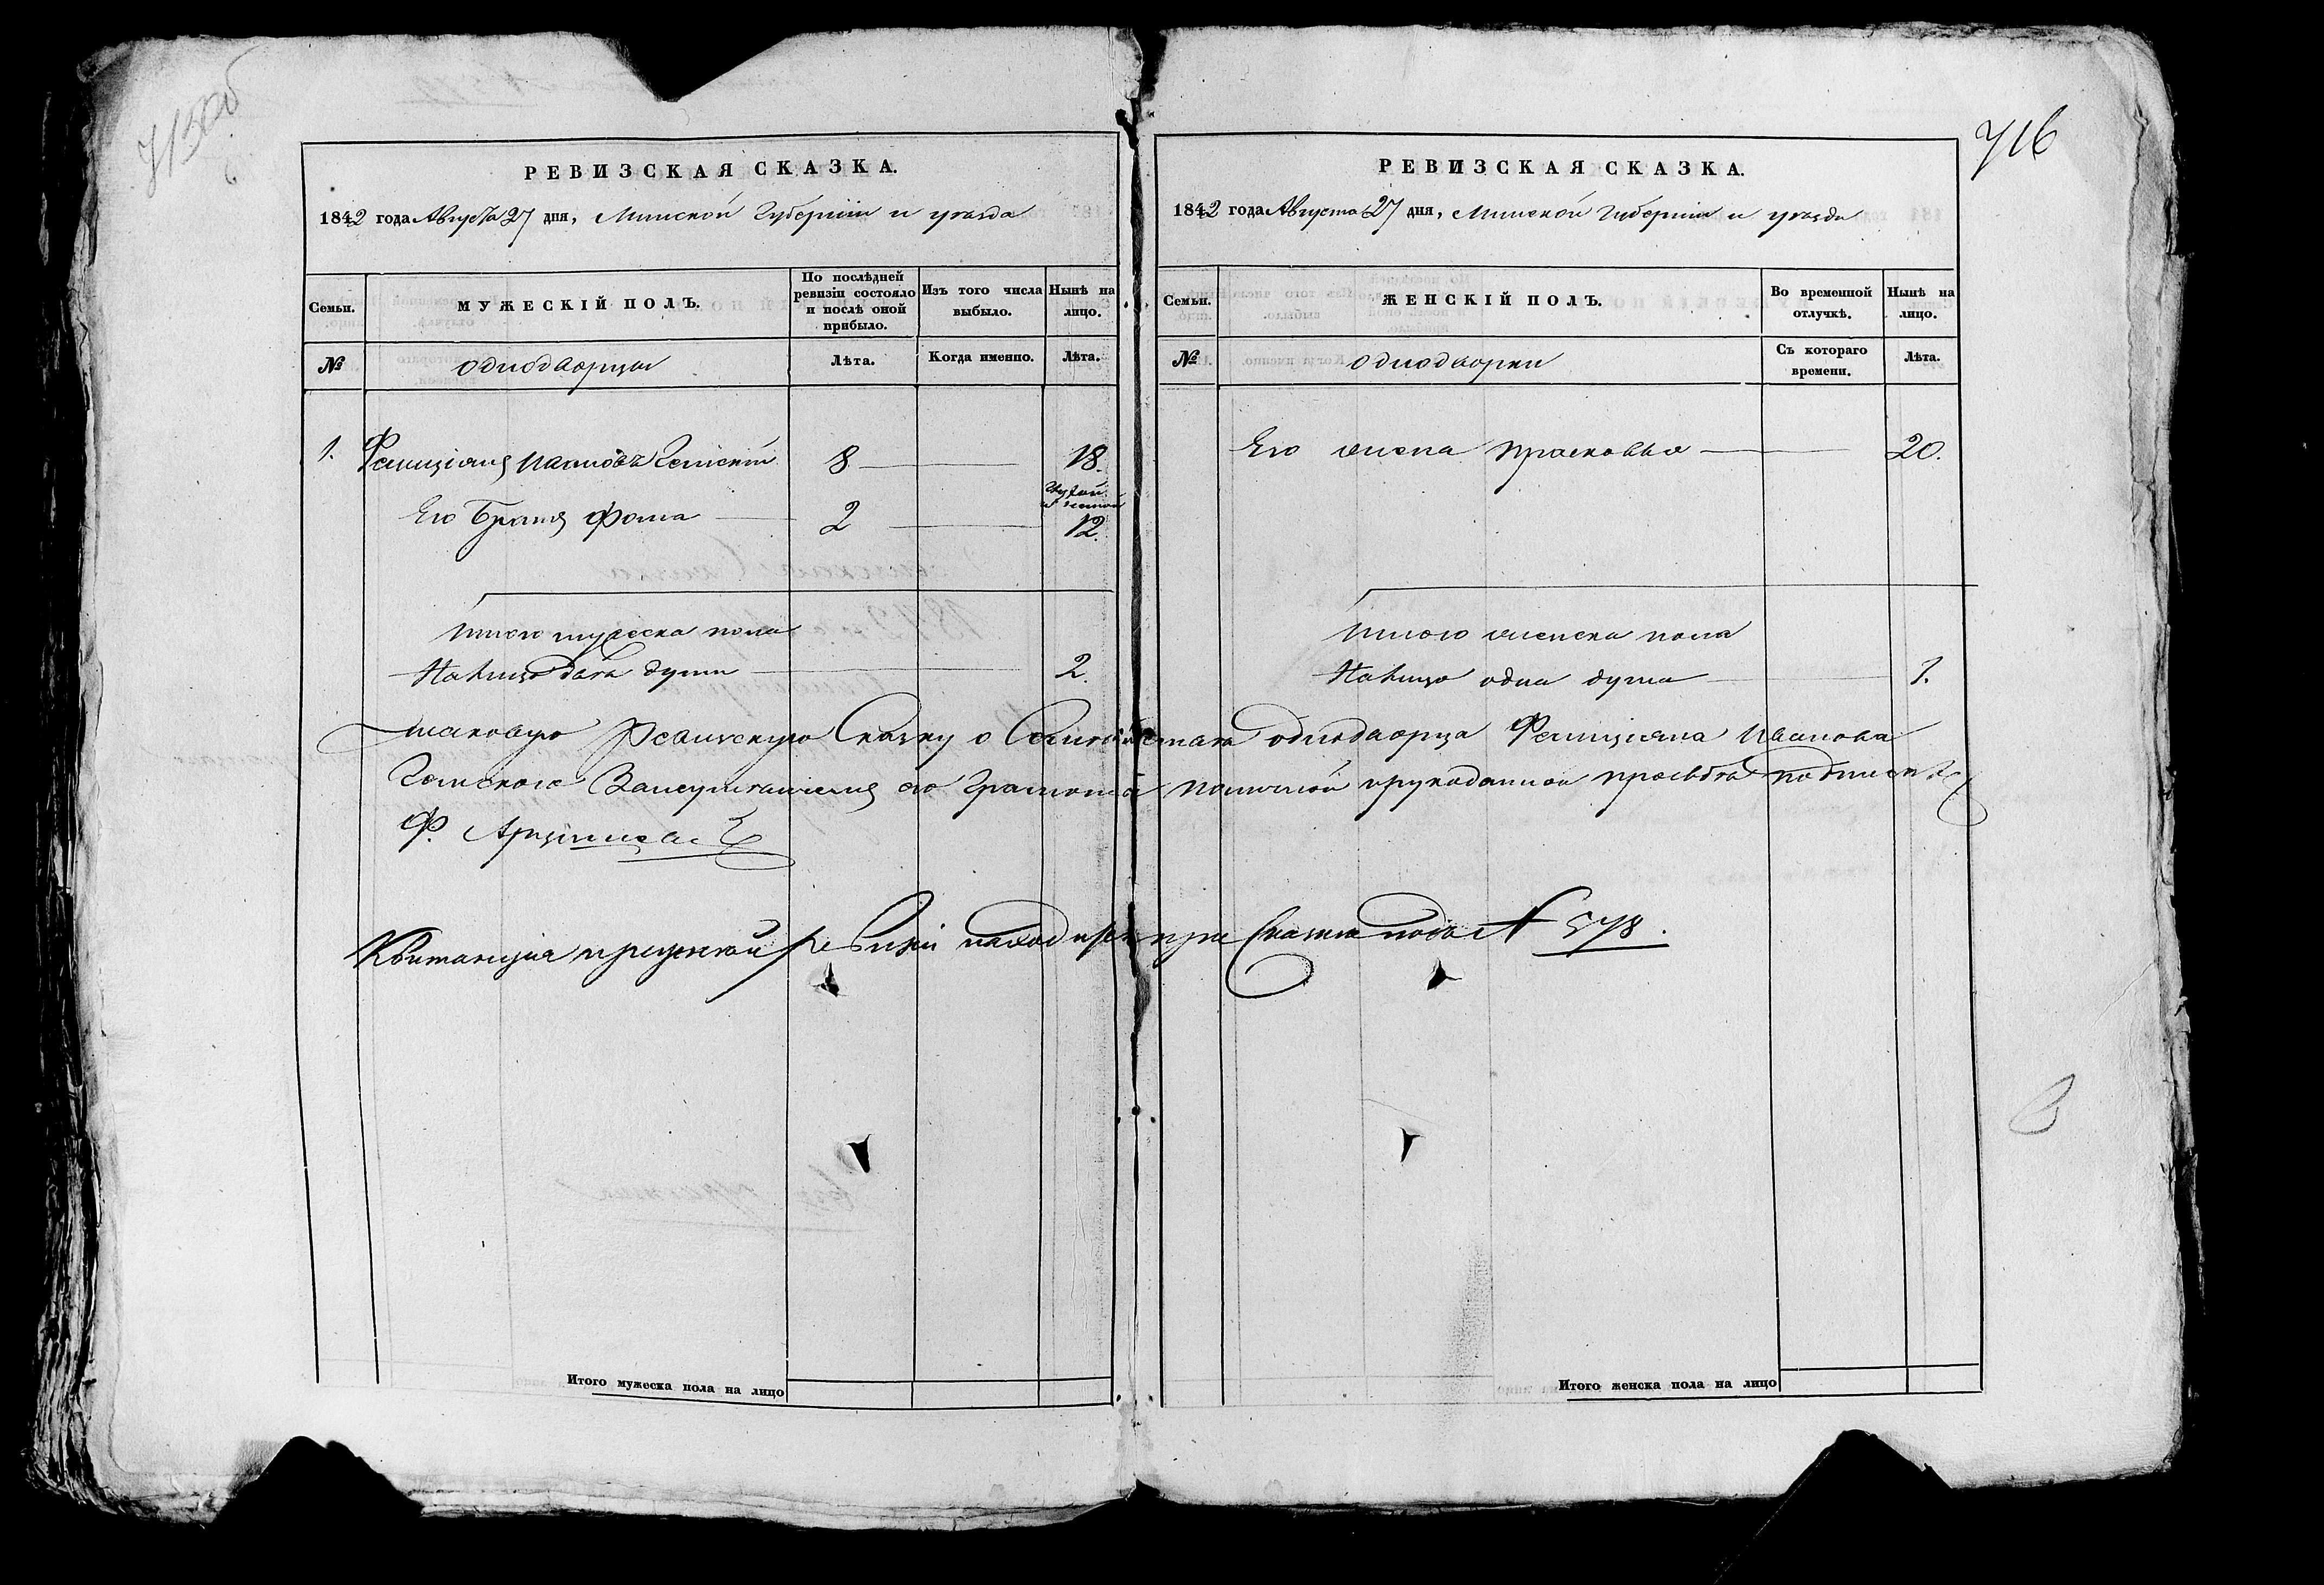 715об
716
РЕВИЗСКАЯ СКАЗКА.
1842 года Августа 27 дня, Минской Губерніи и уезда
Семьи.
МУЖЕСКІЙ ПОЛЪ.
По послѣдней ревизіи состояло и послѣ оной прибыло.
Изъ того числа выбыло.
Нынѣ на лицо.
№
однодворцы
Лѣта.
Когда именно.
Лѣта.
1. Фелиціянъ Ивановъ 8 18.
Его Братъ Фома 2 12.
Итого мужеска пола
На лицо двѣ души 2.
РЕВИЗСКАЯ СКАЗКА.
1842 года Августа 27 дня, Минской Губерніи и уезда
Семьи.
ЖЕНСКІЙ ПОЛЪ.
Во временной отлучкѣ.
Нынѣ на лицо.
№
однодворки
Съ котораго времени.
Лѣта.
Его жена Прасковья 20.
Итого женска пола
На лицо одна душа 1.
таковую Ревизскую Сказку о Семействѣ однодворца Фелиціяна Иванова
За неумѣніемъ его Грамотѣ по личной и рукоданной прозьбѣ подписалъ
Ф.
Квитанція прежней ревизіи находится при Сказкѣ подъ № 578.
Итого мужеска пола на лицо
Итого женска пола на лицо